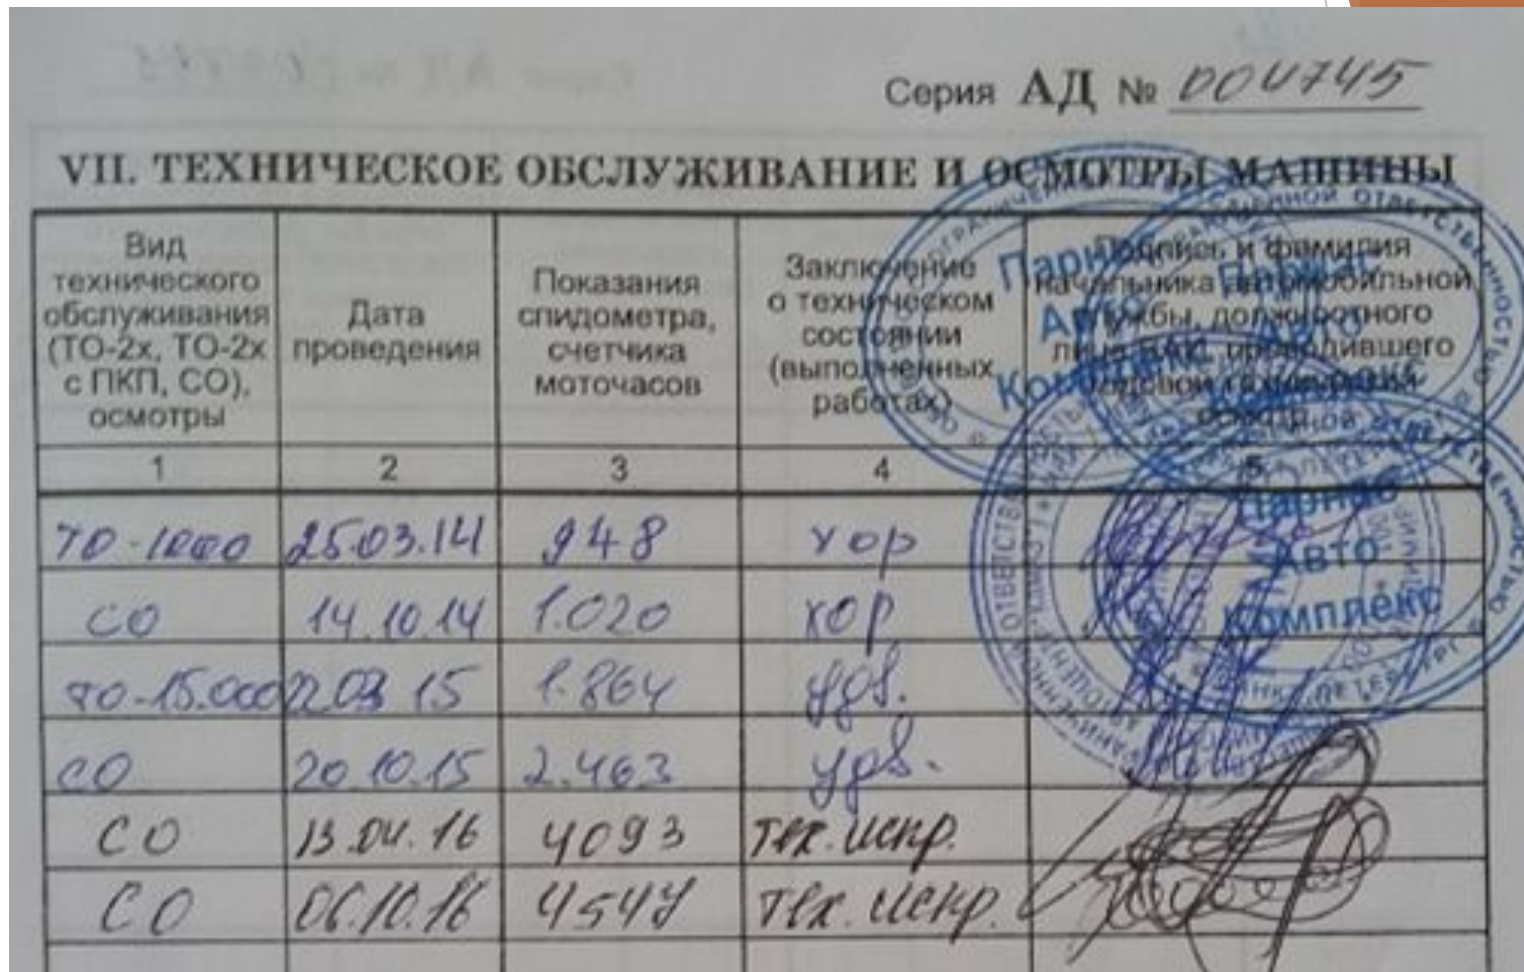 Серия АД № 004745
VII. ТЕХНИЧЕСКОЕ ОБСЛУЖИВАНИЕ И ОСМОТРЫ МАШИНЫ
Вид
технического
обслуживания
(ТО-2х, ТО-2х
с ПКП, СО),
осмотры
Дата
проведения
Показания
спидометра,
счетчика
моточасов
Заключение
о техническом
состоянии
(выполненных
работах)
Подпись и фамилия
начальника автомобильной
службы, должностного
лица проводившего
годовой
1 2 3 4 5
ТО-1000 25.03.14 948 хор
СО 14.10.14 1.020 хор
ТО-15.000 22.03 15 1.864 удв.
СО 20.10.15 2.463 удв.
СО 13.04.16 4093 тех. испр.
СО 06.10.16 4547 тех. испр.
Парнас
Авто
Комплекс
Парнас
Авто
Комплекс